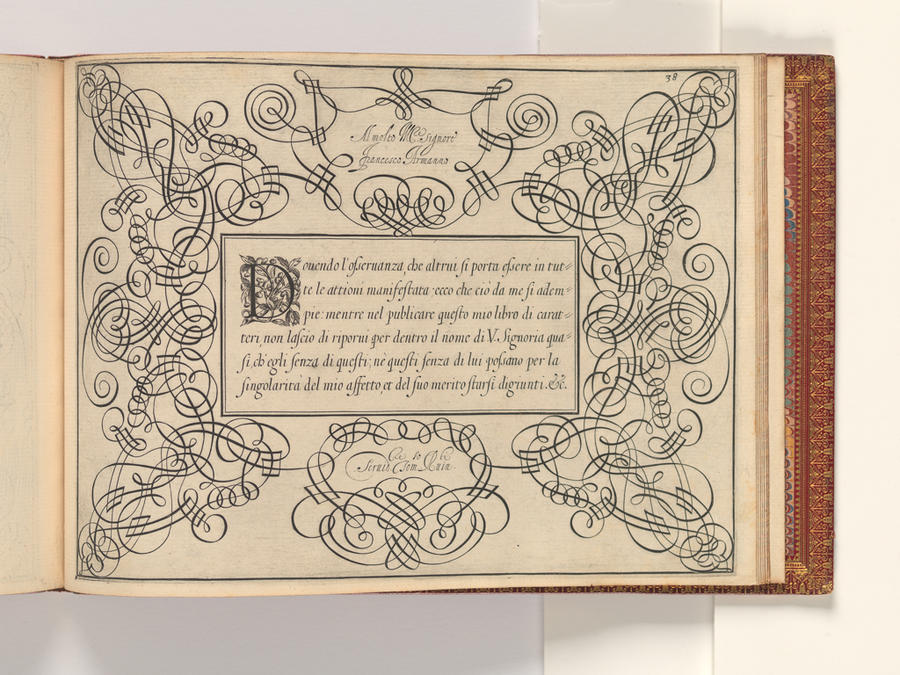 38
Al molto M.co Signore
Francesco Armanno
Douendo l'osseruanza, che altrui si porta essere in tut=
te le attioni manifestata; ecco che ciò da me si adem=
pie: mentre nel publicare questo mio libro di carat=
teri, non lascio di riporui per dentro il nome di V. Signoria qua=
si, ch'egli senza di questi; nè questi senza di lui possano per la
singolarità del mio affetto, et del suo merito starsi digiunti. &c.
Tom. Ruin.